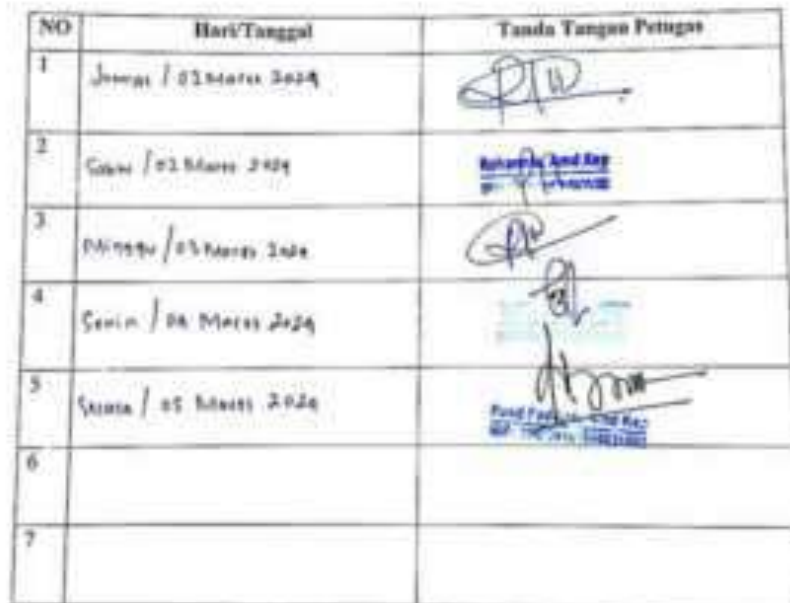 NO Hari/Tanggal Tanda Tangan Petugas
1 Jumat / 01 Maret 2024
2 Sabtu / 02 Maret 2024
3 Minggu / 03 Maret 2024
4 Senin / 04 Maret 2024
5 Selasa / 05 Maret 2024
6
7